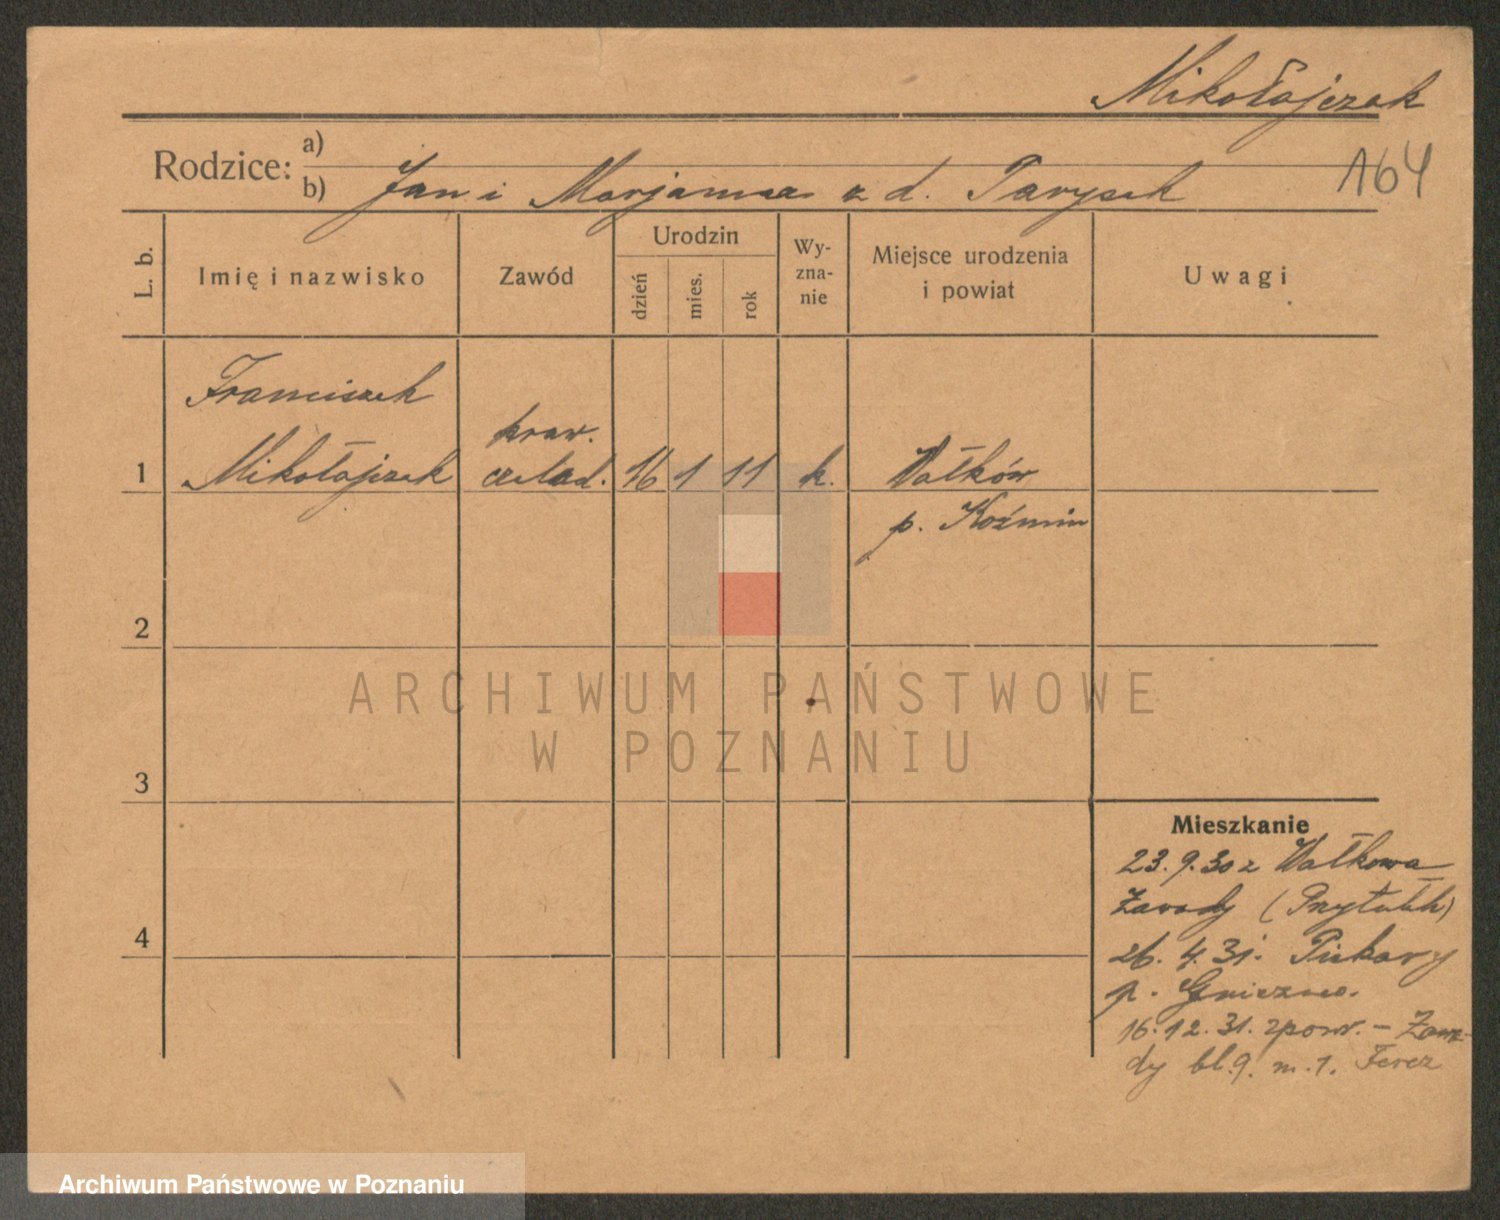 Mikołajczak
164
Rodzice: a)
b) Jan i Marjanna z d. Parysek
L. b.
Imię i nazwisko
Zawód
Urodzin
dzień
mies.
rok
Wy-
zna-
nie
Miejsce urodzenia
i powiat
Uwagi
Franciszek
kraw.
1 Mikołajczak czelad. 16 1 11 k. Wałków
p. Koźmin
2
ARCHIWUM PAŃSTWOWE
W POZNANIU
3
Mieszkanie
23.9.30 z Wałkowa
Zawady (Przytułek)
4
26.4.31. Piekary
p. Gniezno.
16.12.31. zpow. - Zawa-
dy bl. 9. m. 1.
Archiwum Państwowe w Poznaniu